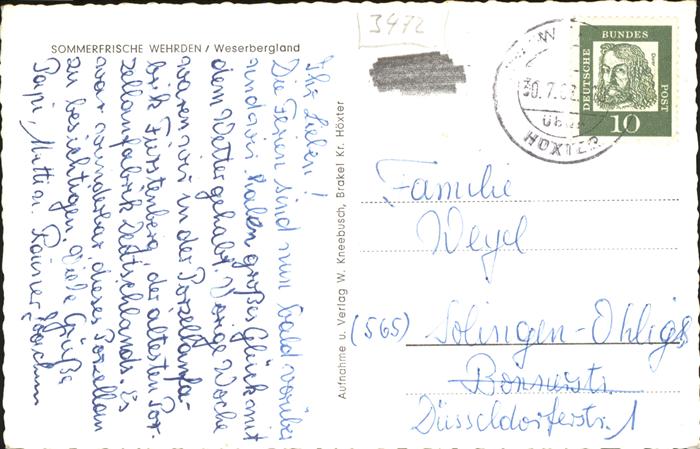 SOMMERFRISCHE WEHRDEN / Weserbergland
Ihr Lieben!
Die Ferien sind nun bald vorüber
und wir haben großes Glück mit
dem Wetter gehabt. Vorige Woche
waren wir in der Porzellanfa-
brik Fürstenberg, der ältesten Por-
zellanfabrik Deutschlands. Es
war wunderbar, dieses Porzellan
zu besichtigen. Viele Grüße
Papi, Mutti, Rainer, Joachim
Aufnahme u. Verlag W. Kneebusch, Brakel Kr. Höxter
3472
30.7.
ÜBER
HÖXTER
DEUTSCHE BUNDES POST
Dürer
10
Familie
Weyel
(565) Solingen-Ohligs
Bonnerstr.
Düsseldorferstr. 1